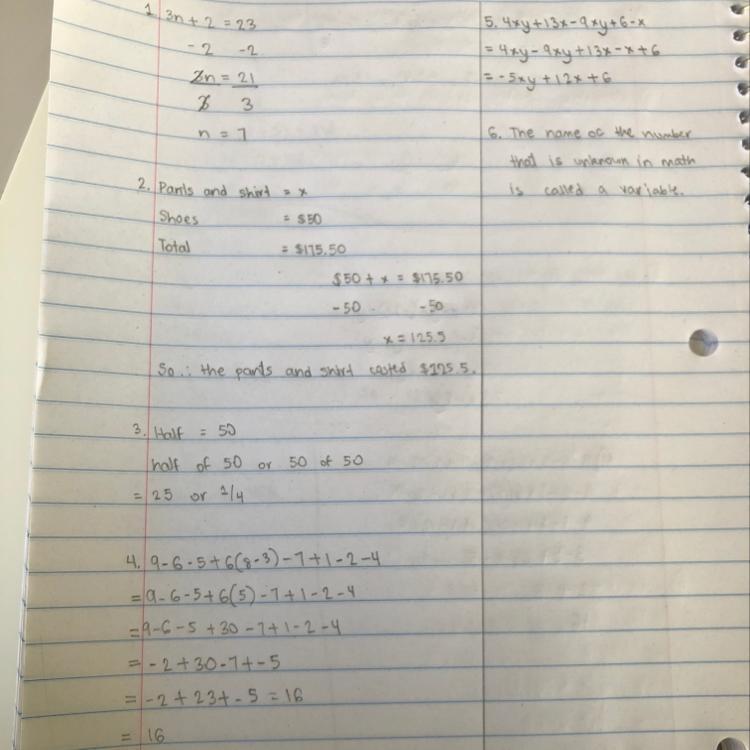 1. 3n + 2 = 23
- 2 -2
3n = 21
3 3
n = 7
2. Pants and shirt = x
Shoes = $50
Total = $175.50
$50 + x = $175.50
-50 -50
x = 125.5
So ∴ the pants and shirt costed $125.5.
3. Half = 50
half of 50 or 50 of 50
= 25 or 1/4
4. 9-6-5+6(8-3)-7+1-2-4
=9-6-5+6(5)-7+1-2-4
=9-6-5+30-7+1-2-4
= -2+30-7+-5
= -2+23+-5 = 16
= 16
5. 4xy+13x-9xy+6-x
= 4xy-9xy+13x-x+6
= -5xy+12x+6
6. The name of the number
that is unknown in math
is called a variable.